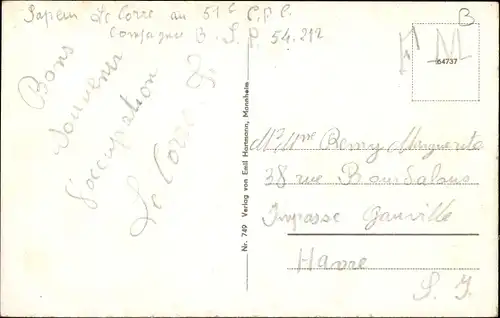 Sapeur Le Corre au 51e C.P.C.
Compagnie B. S.P. 54.212
B
F M
64737
Bons
Souvenir
d'occupation
Le Corre
Nr. 749 Verlag von Emil Hartmann, Mannheim
Mr Mme Remy Marguerite
38 rue
Impasse Gauville
Havre
S. I.